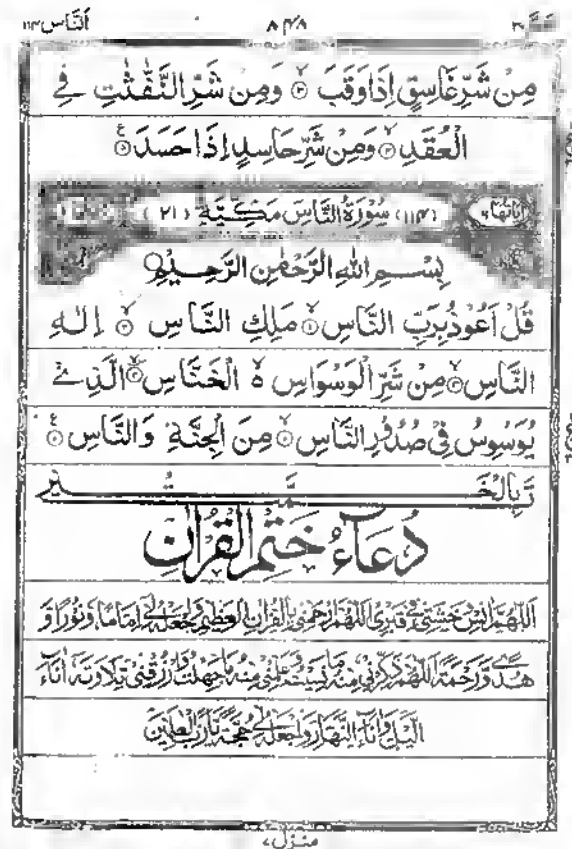 اَلنَّاس ١١٤ ٨٤٨ عَمَّ ٣٠
مِنْ شَرِّ غَاسِقٍ اِذَا وَقَبَ ۙ﴿٣﴾ وَمِنْ شَرِّ النَّفّٰثٰتِ فِي
الْعُقَدِ ۙ﴿٤﴾ وَمِنْ شَرِّ حَاسِدٍ اِذَا حَسَدَ ﴿٥﴾
اٰيَاتُهَا ٦ (١١٤) سُوْرَةُ النَّاسِ مَكِّيَّةٌ (٢١)
بِسْمِ اللّٰهِ الرَّحْمٰنِ الرَّحِيْمِ
قُلْ اَعُوْذُ بِرَبِّ النَّاسِ ۙ﴿١﴾ مَلِكِ النَّاسِ ۙ﴿٢﴾ اِلٰهِ
النَّاسِ ۙ﴿٣﴾ مِنْ شَرِّ الْوَسْوَاسِ ۙ٥ الْخَنَّاسِ ۙ﴿٤﴾ الَّذِيْ
يُوَسْوِسُ فِيْ صُدُوْرِ النَّاسِ ۙ﴿٥﴾ مِنَ الْجِنَّةِ وَالنَّاسِ ﴿٦﴾
تَمَّتْ بِالْخَيْرِ
دُعَآءُ خَتْمِ الْقُرْاٰنِ
اَللّٰهُمَّ اٰنِسْ وَحْشَتِيْ فِيْ قَبْرِيْ اَللّٰهُمَّ ارْحَمْنِيْ بِالْقُرْاٰنِ الْعَظِيْمِ وَاجْعَلْهُ لِيْ اِمَامًا وَّنُوْرًا وَّ
هُدًى وَّرَحْمَةً اَللّٰهُمَّ ذَكِّرْنِيْ مِنْهُ مَا نَسِيْتُ وَعَلِّمْنِيْ مِنْهُ مَا جَهِلْتُ وَارْزُقْنِيْ تِلَاوَتَهٗ اٰنَآءَ
الَّيْلِ وَاٰنَآءَ النَّهَارِ وَاجْعَلْهُ لِيْ حُجَّةً يَّا رَبَّ الْعٰلَمِيْنَ
منزل ٧